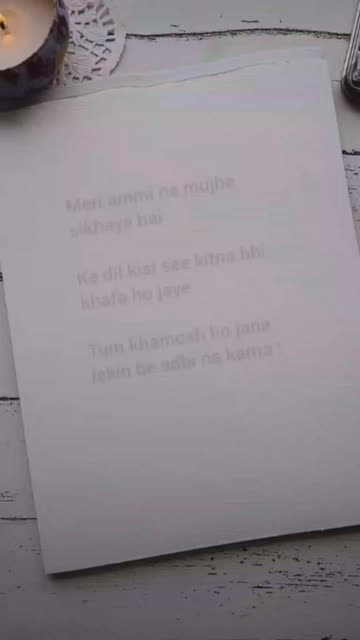 Meri ammi ne mujhe
sikhaya hai
Ke dil kisi see kitna bhi
khafa ho jaye
Tum khamosh ho jana
lekin be adbi na karna